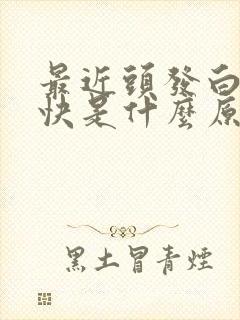 最近頭發白
快是什麼原
黑土冒青煙